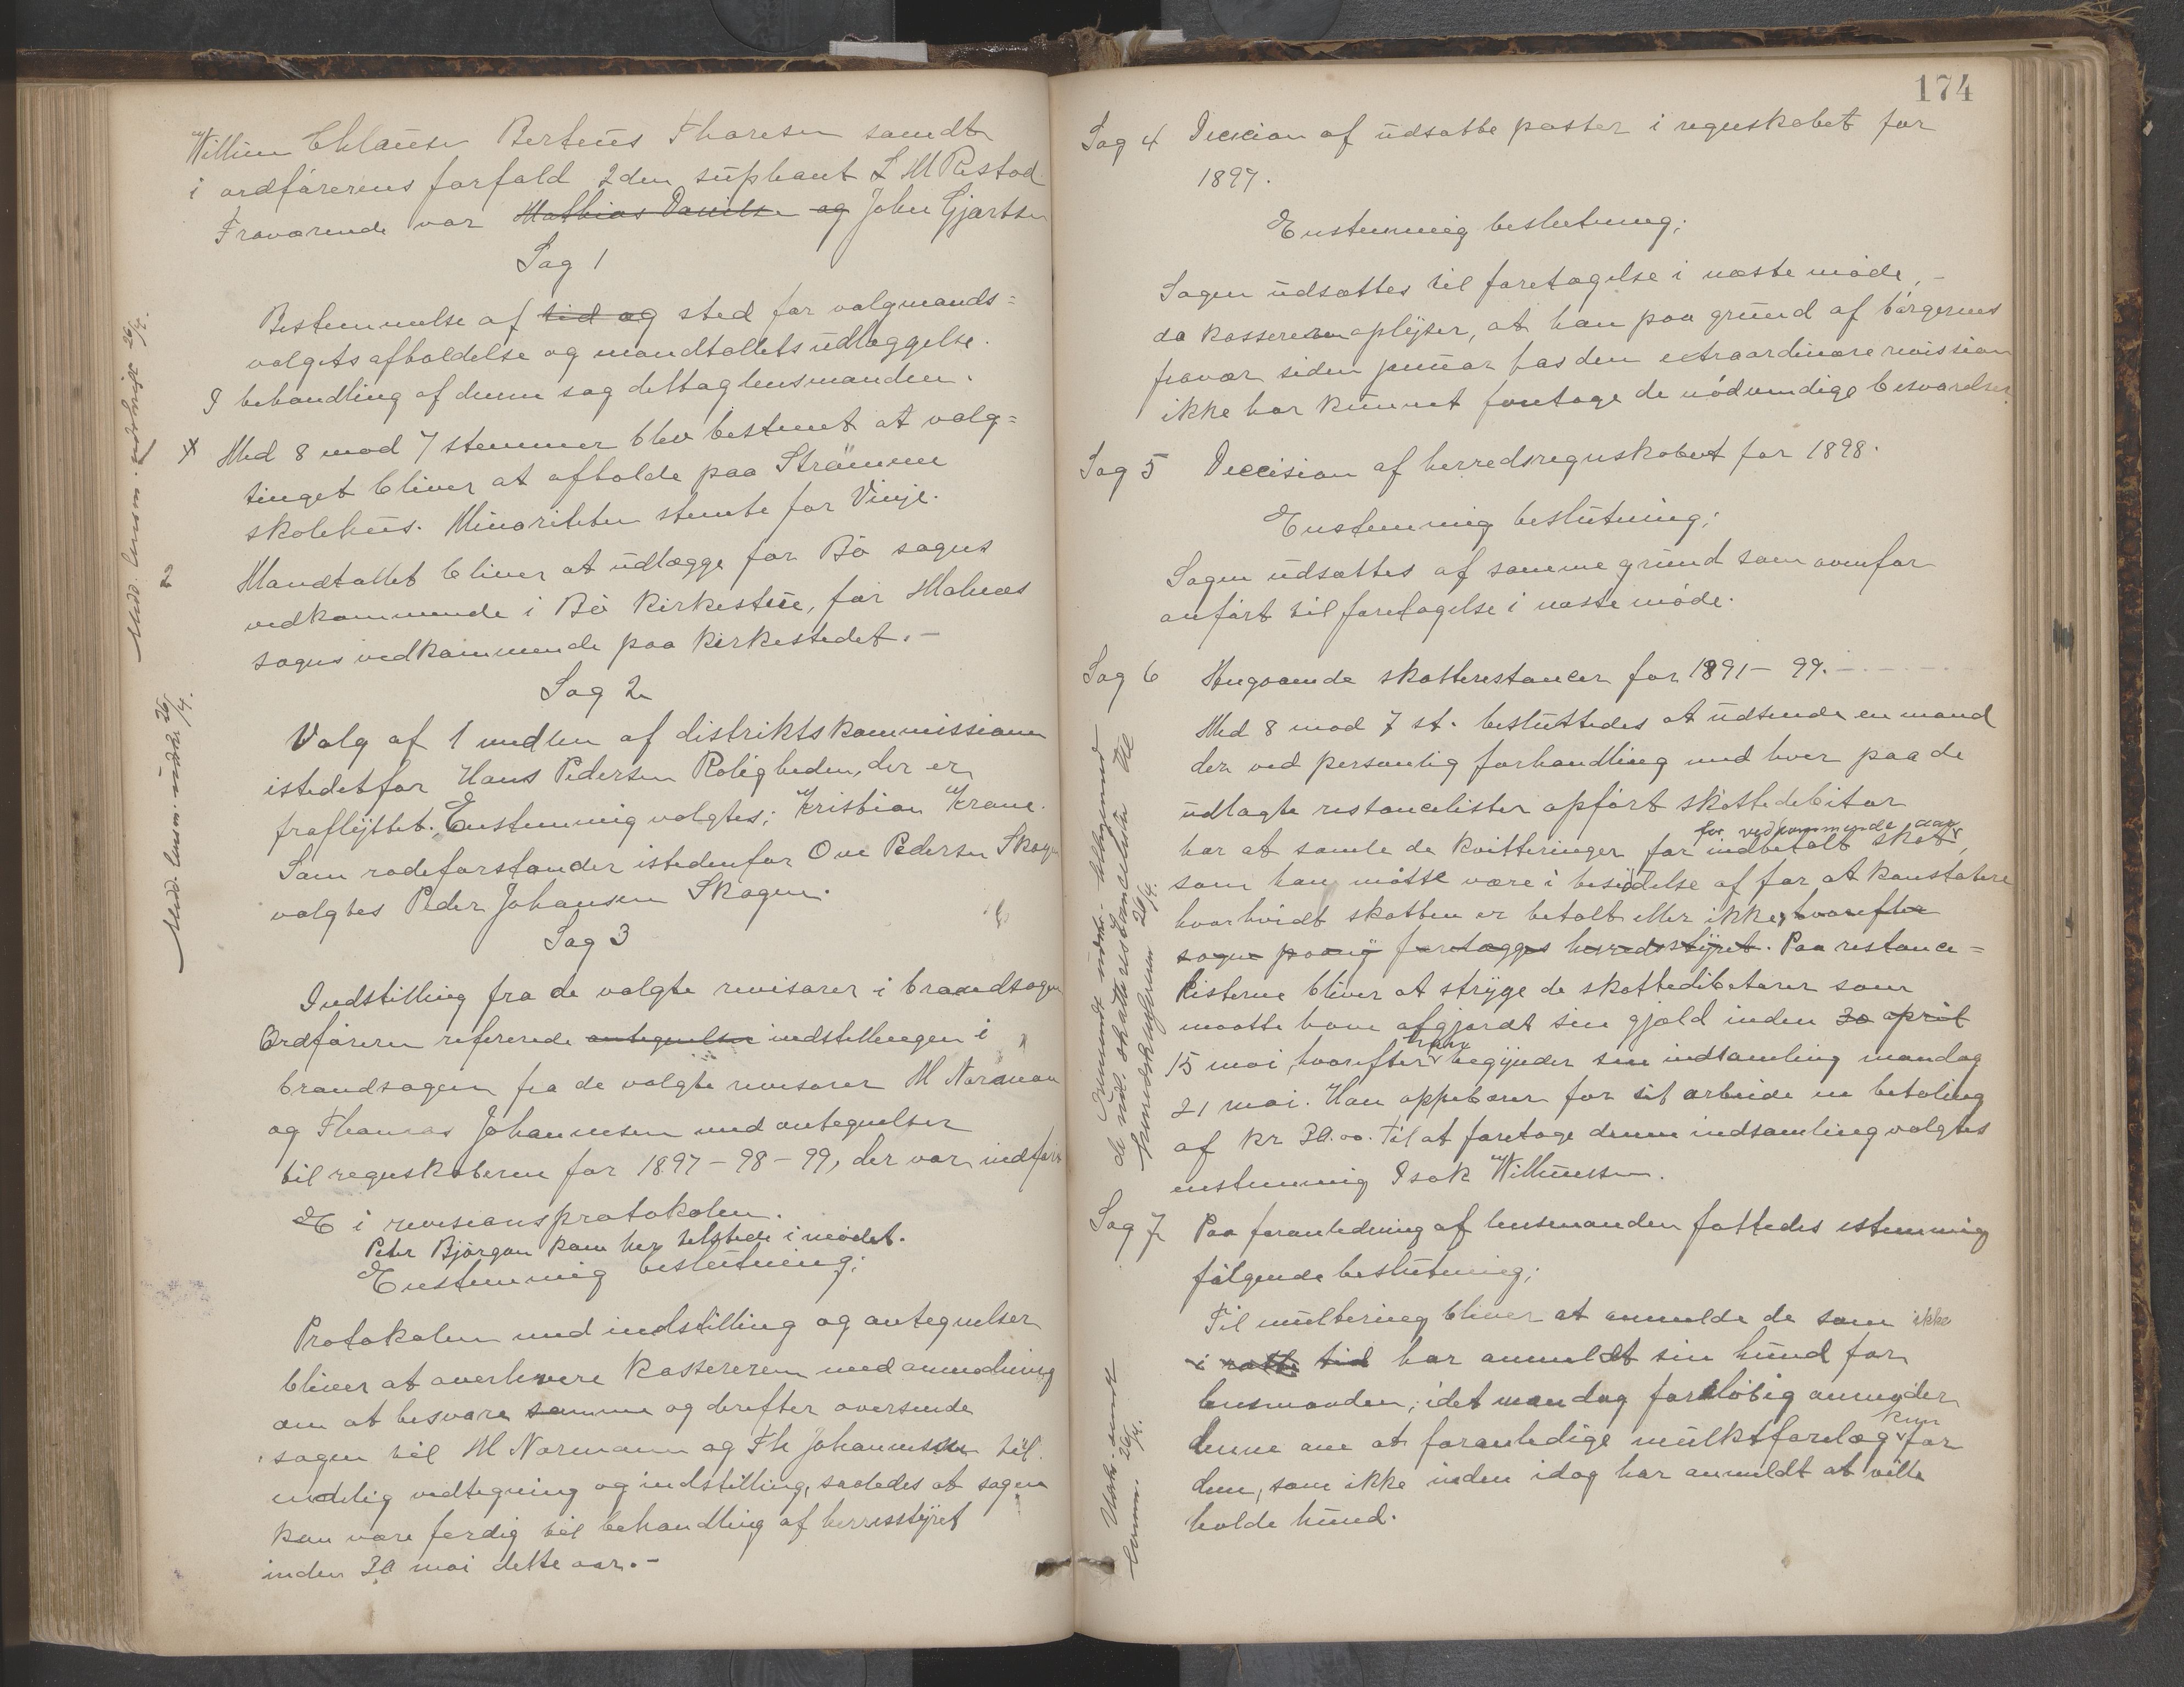 Willum Chlausen Berteus Thoresen samdt
i ordförerens forfald 2den suphant L M Restad
Fraværende var Mathias Danilsen og John Gjærtsen
Sag 1
Bestemmelse af tid og sted for valgmands=
valgets afholdelse og mandtallets udlæggelse.
I behandling af denne sag deltog lensmanden.
Med 8 mod 7 stemmer blev bestemt at valg=
tinget bliver at afholde paa Straumme
skolehus. Minoriteten stemte for Vinje.
Mandtallet bliver at udlægge for Bö sogns
vedkommende i Bö kirkestue, for Malnæs
sogns vedkommende paa kirkestedet.-
Sag 2
Valg af 1 medlem af distriktskommissionen
istedetfor Hans Pedersen Roligheden, der er
fraflyttet. Enstemmig valgtes; Kristian Krane.
Som rodeforstander istedenfor Ove Pedersen Skogen
valgtes Peder Johansen Skogen.
Sag 3
Indstilling fra de valgte revisorer i brandsagen
Ordföreren refererede antegnelsen indstillingen i
brandsagen fra de valgte revisorer M Normann
og Thomas Johannesen med antegnelser
til regnskaberne for 1897-98-99, der var indfört
i revisionsprotokolen.
Peter Björgan kom her tilstede i mödet.
Enstemmig beslutning;
Protokolen med indstilling og antegnelser
bliver at overlevere kassereren med anmodning
om at besvare samme og derefter oversende
sagen til M Normann og Th Johannesen til
endelig vedtegning og indstilling, saaledes at sagen
kan være færdig til behandling af herresstyret
inden 30 mai dette aar.-
Medd. lensm. udskrift 26/4.
2
Medd. lensm. udskr. 26/4.
174
Sag 4 Decision af udsatte poster i regnskabet for
1897.
Enstemmig beslutning;
Sagen udsættes til foretagelse i næste möde,-
da kassereren oplyser, at han paa grund af börgernes
fravær siden januar hos den extraordinære revission
ikke har kunnet foretage de nödvendige besvarelser.
Sag 5 Deccision af herredsregnskabet for 1898.
Enstemmig beslutning;
Sagen udsættes af samme grund som ovenfor
anfört til foretagelse i næste möde.
Sag 6 Angaaende skatterestancer for 1891-99.
Med 8 mod 7 st. besluttedes at udsende en mand
der ved personlig forhandling med hver paa de
udlagte restancelister opfört skattedebitor
for vedkommende aar
har at samle de kvitteringer for indbetalt skat,
som han måtte være i besiddelse af for at konstatere
hvorhvidt skatten er betalt eller ikke, hvorefter
sagen paany forelægges herredsstyret. Paa restance=
listerne bliver at stryge de skattedebitorer som
maatte have afgjordt sin gjæld inden 30 april
han
15 mai, hvorefter begynder sin indsamling mandag
21 mai. Han oppebærer for sit arbeide en betaling
af kr 30.00. Til at foretage denne indsamling valgtes
enstemmig Isak Willumsen.
Sag 7 Paa foranledning af lensmanden fattedes estemmig
fölgende beslutning;
Til multering bliver at anmelde de som ikke
i rette tid har anmeldt sin hund for
lensmanden, idet man dog foreløbig anmoder
kun
denne om at foranledige mulktforelæg for
dem, som ikke inden idag har anmeldt at ville
holde hund.
Udskr. sendt
lensm. 26/4.